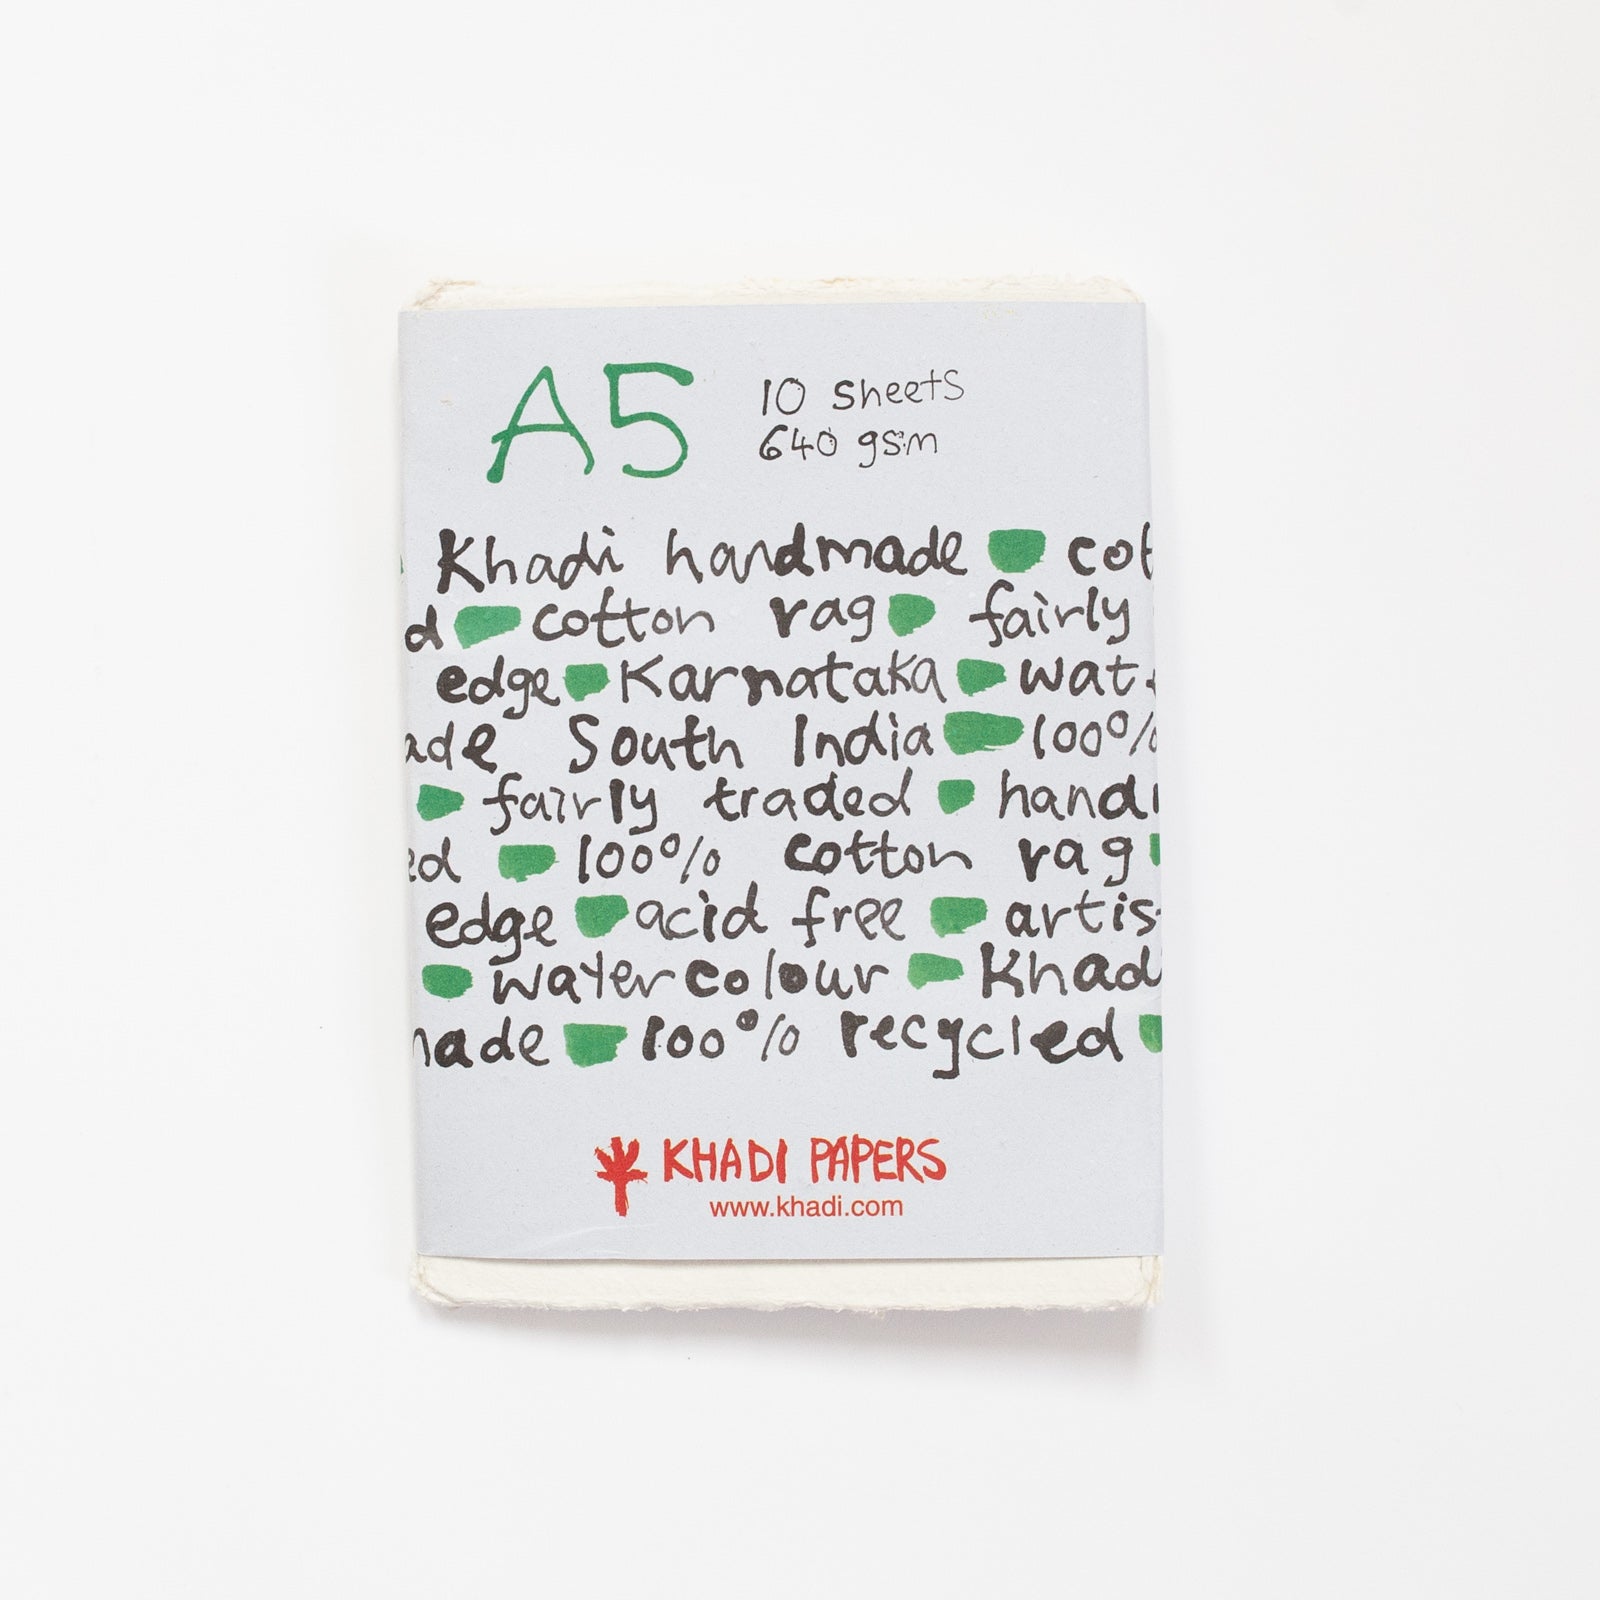 A5
10 sheets
640 gsm
Khadi handmade cot
d cotton rag fairly
edge Karnataka wat
ade South India 100%
fairly traded hand
ed 100% cotton rag
edge acid free artis
watercolour Khad
made 100% recycled
KHADI PAPERS
www.khadi.com